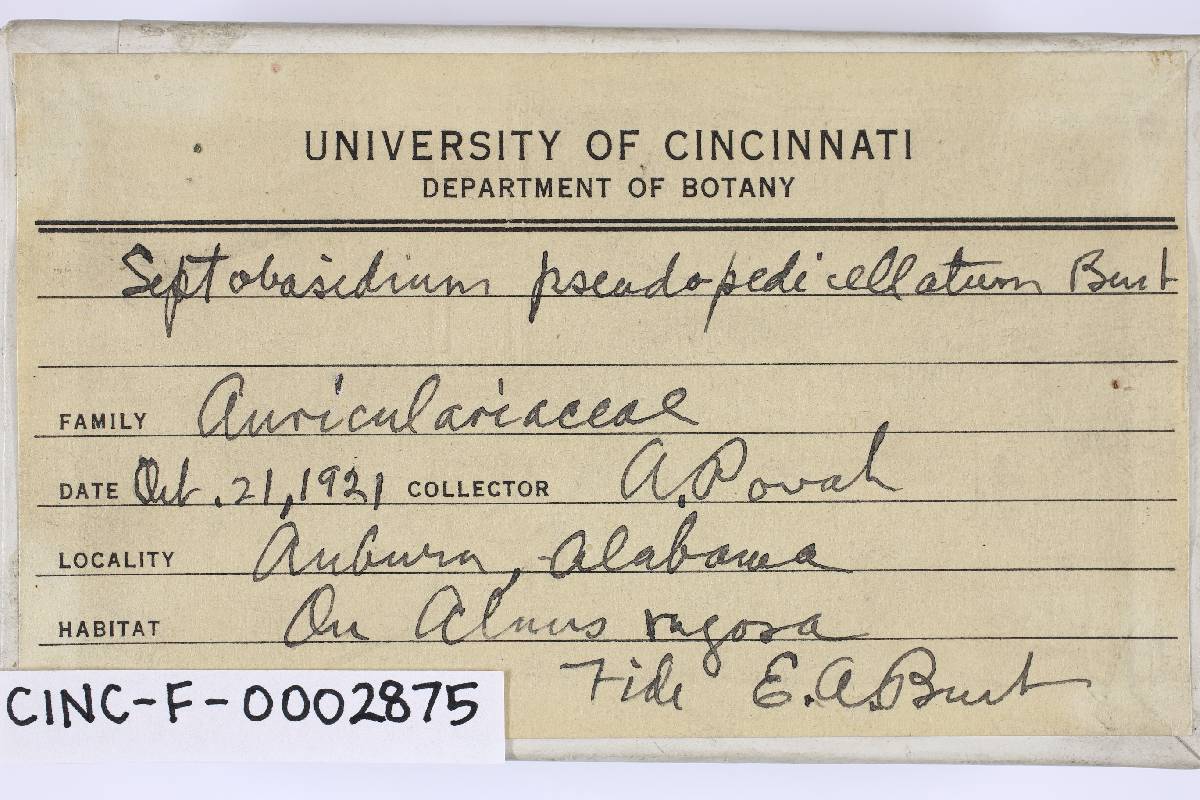 UNIVERSITY OF CINCINNATI
DEPARTMENT OF BOTANY
Septobasidium pseudopedicellatum Burt
FAMILY Auriculariaceae
DATE Oct. 21, 1921 COLLECTOR A. Povah
LOCALITY Auburn, Alabama
HABITAT On Alnus rugosa
Fide E. A. Burt
CINC-F-0002875